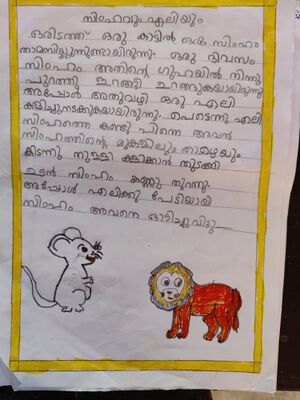 സിംഹവും എലിയും
ഒരിടത്ത് ഒരു കാട്ടിൽ ഒരു സിംഹം
താമസിച്ചിരുന്നുണ്ടായിരുന്നു. ഒരു ദിവസം
സിംഹം അതിന്റെ ഗുഹയിൽ നിന്നു
പുറത്തു ഇറങ്ങി ഉറങ്ങുകയായിരുന്നു
അപ്പോൾ അതുവഴി ഒരു എലി
കളിച്ചുനടക്കുകയായിരുന്നു. പെട്ടെന്നു എലി
സിംഹത്തെ കണ്ടു പിന്നെ അവൻ
സിംഹത്തിന്റെ മുകളിലും താഴെയും
കിടന്നു തുള്ളി കളിക്കാൻ തുടങ്ങി
ഉടൻ സിംഹം കണ്ണു തുറന്നു.
അപ്പോൾ എലിക്കു പേടിയായി
സിംഹം അവനെ ഓടിച്ചുവിട്ടു